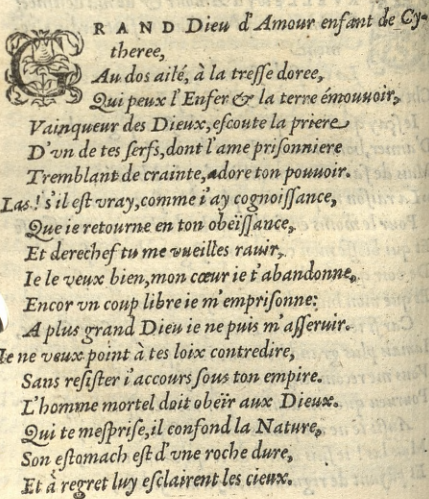 GRAND Dieu d'Amour enfant de Cy-
theree,
Au dos ailé, à la tresse doree,
Qui peux l'Enfer & la terre émouuoir,
Vainqueur des Dieux, escoute la priere
D'vn de tes serfs, dont l'ame prisonniere
Tremblant de crainte, adore ton pouuoir.
Las! s'il est vray, comme i'ay cognoissance,
Que ie retourne en ton obeïssance,
Et derechef tu me vueilles rauir,
Ie le veux bien, mon cœur ie t'abandonne,
Encor vn coup libre ie m'emprisonne:
A plus grand Dieu ie ne puis m'asseruir.
Ie ne veux point à tes loix contredire,
Sans resister i'accours sous ton empire.
L'homme mortel doit obeïr aux Dieux.
Qui te mesprise, il confond la Nature,
Son estomach est d'vne roche dure,
Et à regret luy esclairent les cieux.